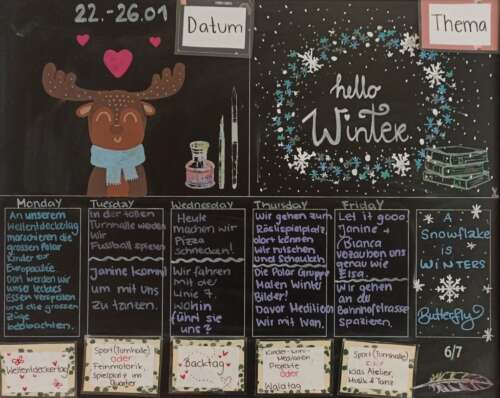 22.-26.01
Datum
Thema
hello
Winter
Monday
Tuesday
Wednesday
Thursday
Friday
An unserem
Weltentdeckertag
marschieren die
grossen Polar
Kinder zur
Europaallee.
Dort werden wir
unser leckeres
Essen verspeisen
und die grossen
Züge
beobachten.
In der tollen
Turnhalle werden
wir
Fussball spielen
Janine kommt
um mit uns
zu tanzen.
Heute
machen wir
Pizza
schnecken!
Wir fahren
mit der
Linie 7.
wohin
führt sie
uns?
Wir gehen zum
Röslispielplatz,
dort können
wir rutschen
und Schaukeln
Die Polar Gruppe
Malen Winter
Bilder!
Davor Meditieren
Wir mit Ivan.
Let it gooo
Janine +
Bianca
verzaubern uns
genau wie
Elsa.
Wir gehen
an der
Bahnhofstrasse
spazieren.
A
Snowflake
is
WINTERS
Butterfly
6/7
Weltentdeckertag
Sport (Turnhalle)
oder
Feinmotorik,
Spielplatz im
Quartier
Backtag
Kinder-Wir-
Meditation,
Projekte
oder
Waldtag
Sport (Turnhalle)
Kids Atelier,
Musik & Tanz